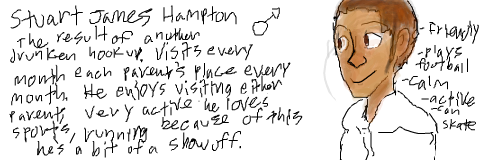 Stuart James Hampton
The result of another
drunken hookup. Visits every
month each parent's place every
month. He enjoys visiting either
parent, very active he loves
sports, running because of this
he's a bit of a show off.
-friendly
-plays
football
-calm
-active
-can
skate